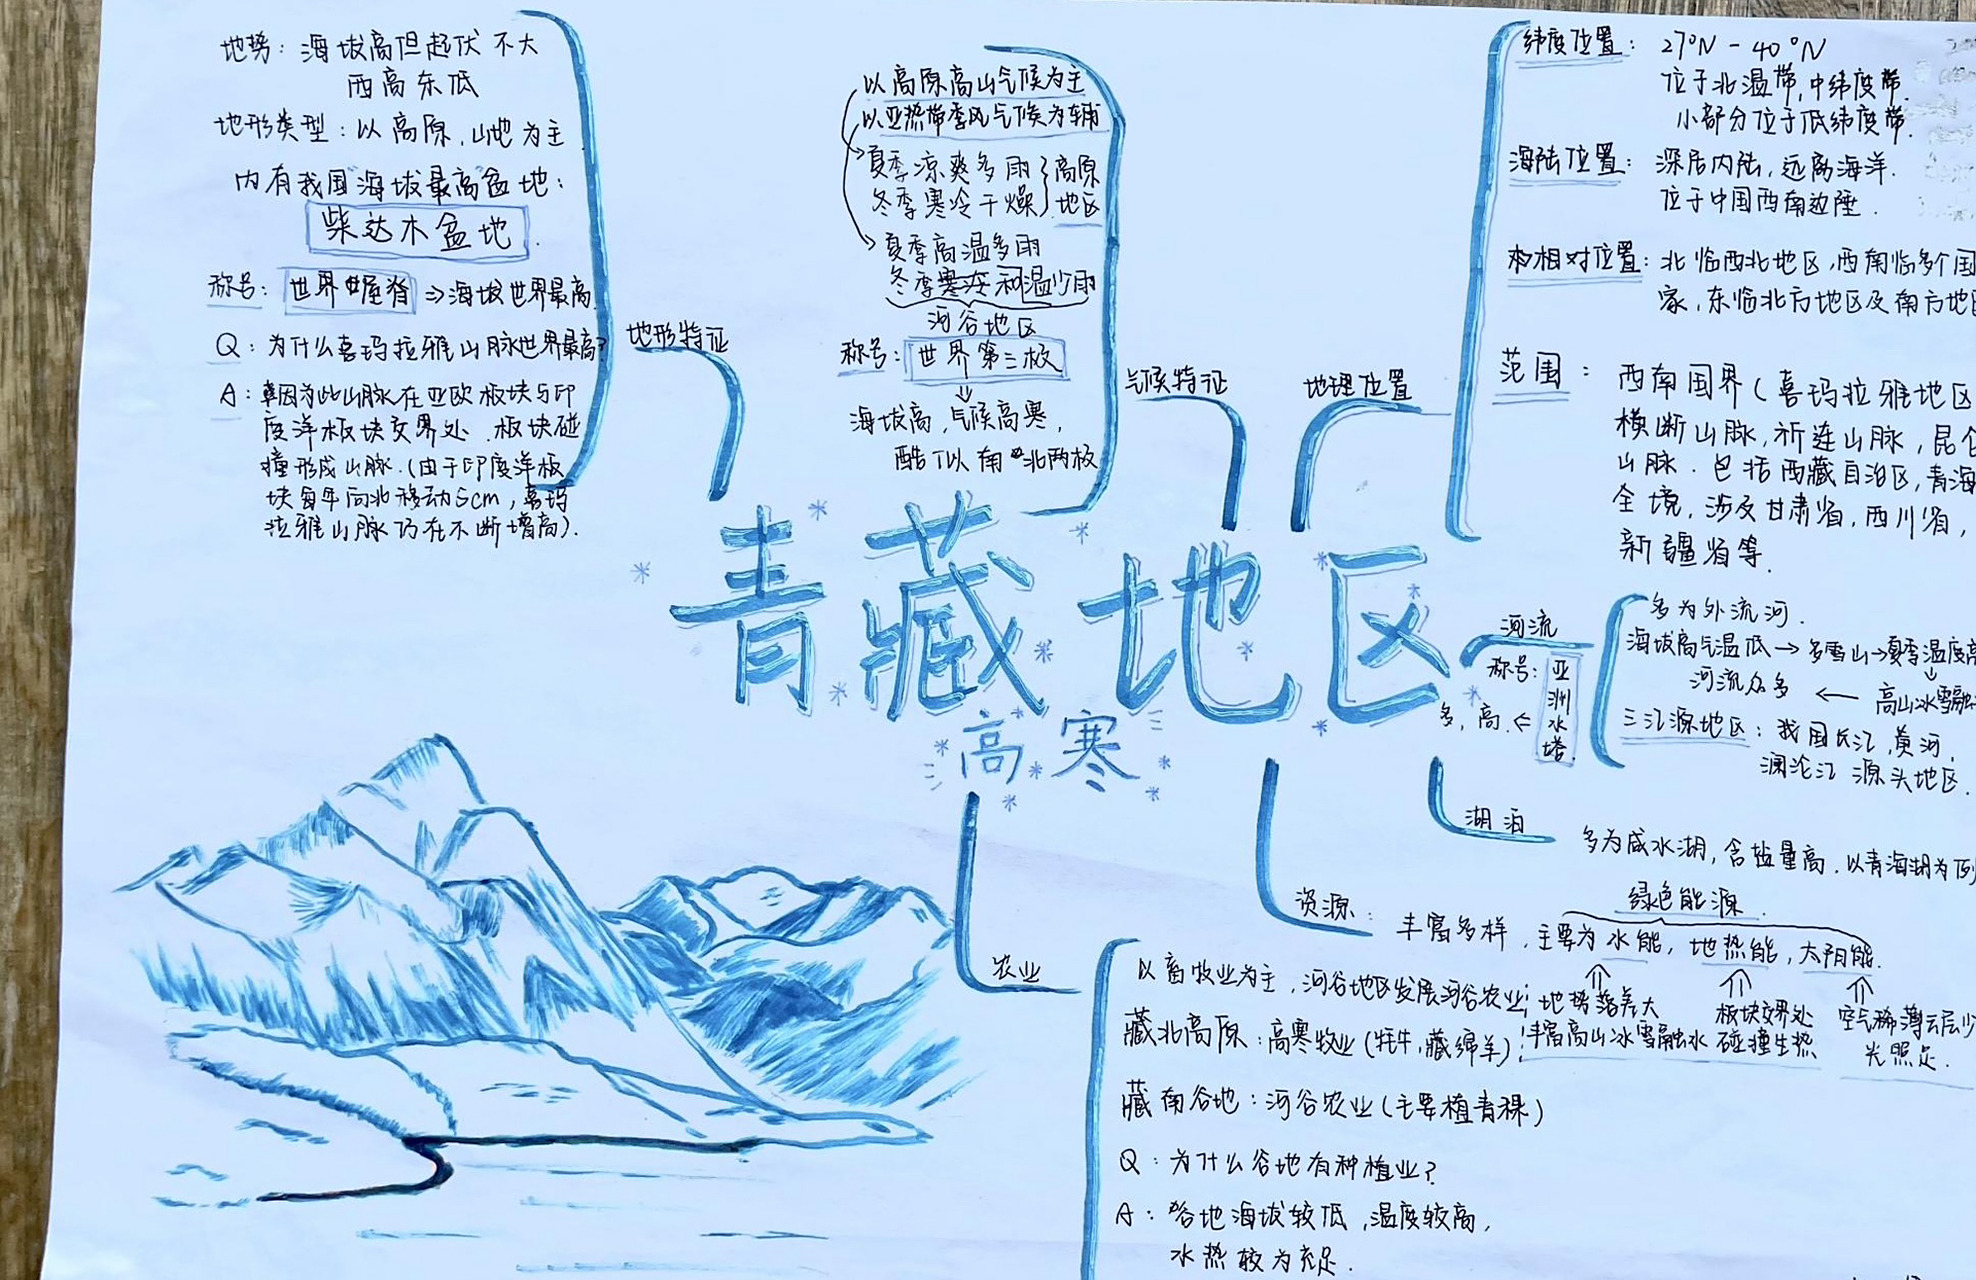 地势：海拔高但起伏不大
西高东低
地形类型：以高原，山地为主
内有我国海拔最高盆地：
柴达木盆地.
称号：世界屋脊 ⇒海拔世界最高.
Q：为什么喜玛拉雅山脉世界最高？
A：因为此山脉在亚欧板块与印
度洋板块交界处．板块碰
撞形成山脉.(由于印度洋板
块每年向北移动5cm，喜玛
拉雅山脉仍在不断增高).
地形特征
以高原高山气候为主
以亚热带季风气候为辅
夏季凉爽多雨
冬季寒冷干燥
高原
地区
夏季高温多雨
冬季温和少雨
河谷地区
称号：世界第三极
⇓
海拔高，气候高寒，
酷似南北两极
气候特征
地理位置
纬度位置：27°N - 40°N
位于北温带,中纬度带.
小部分位于低纬度带.
海陆位置：深居内陆，远离海洋.
位于中国西南边陲.
相对位置：北临西北地区,西南临多个国
家,东临北方地区及南方地区
范围：西南国界(喜玛拉雅地区
横断山脉,祁连山脉,昆仑
山脉．包括西藏自治区,青海
全境，涉及甘肃省,四川省，
新疆省等.
青藏地区
高寒
河流
称号：亚洲水塔
多,高.⇐
多为外流河.
海拔高气温低→多雪山→夏季温度高
河流众多 ← 高山冰雪融
三江源地区：我国长江,黄河,
澜沧江 源头地区.
湖泊
多为咸水湖，含盐量高.以青海湖为例
资源：
绿色能源.
丰富多样，主要为水能，地热能，太阳能.
地势落差大
丰富高山冰雪融水
板块交界处
碰撞生热
空气稀薄云层少
光照足.
农业
以畜牧业为主，河谷地区发展河谷农业;
藏北高原：高寒牧业(牦牛,藏绵羊);
藏南谷地：河谷农业(主要植青稞)
Q：为什么谷地有种植业？
A：谷地海拔较低，温度较高，
水热较为充足.